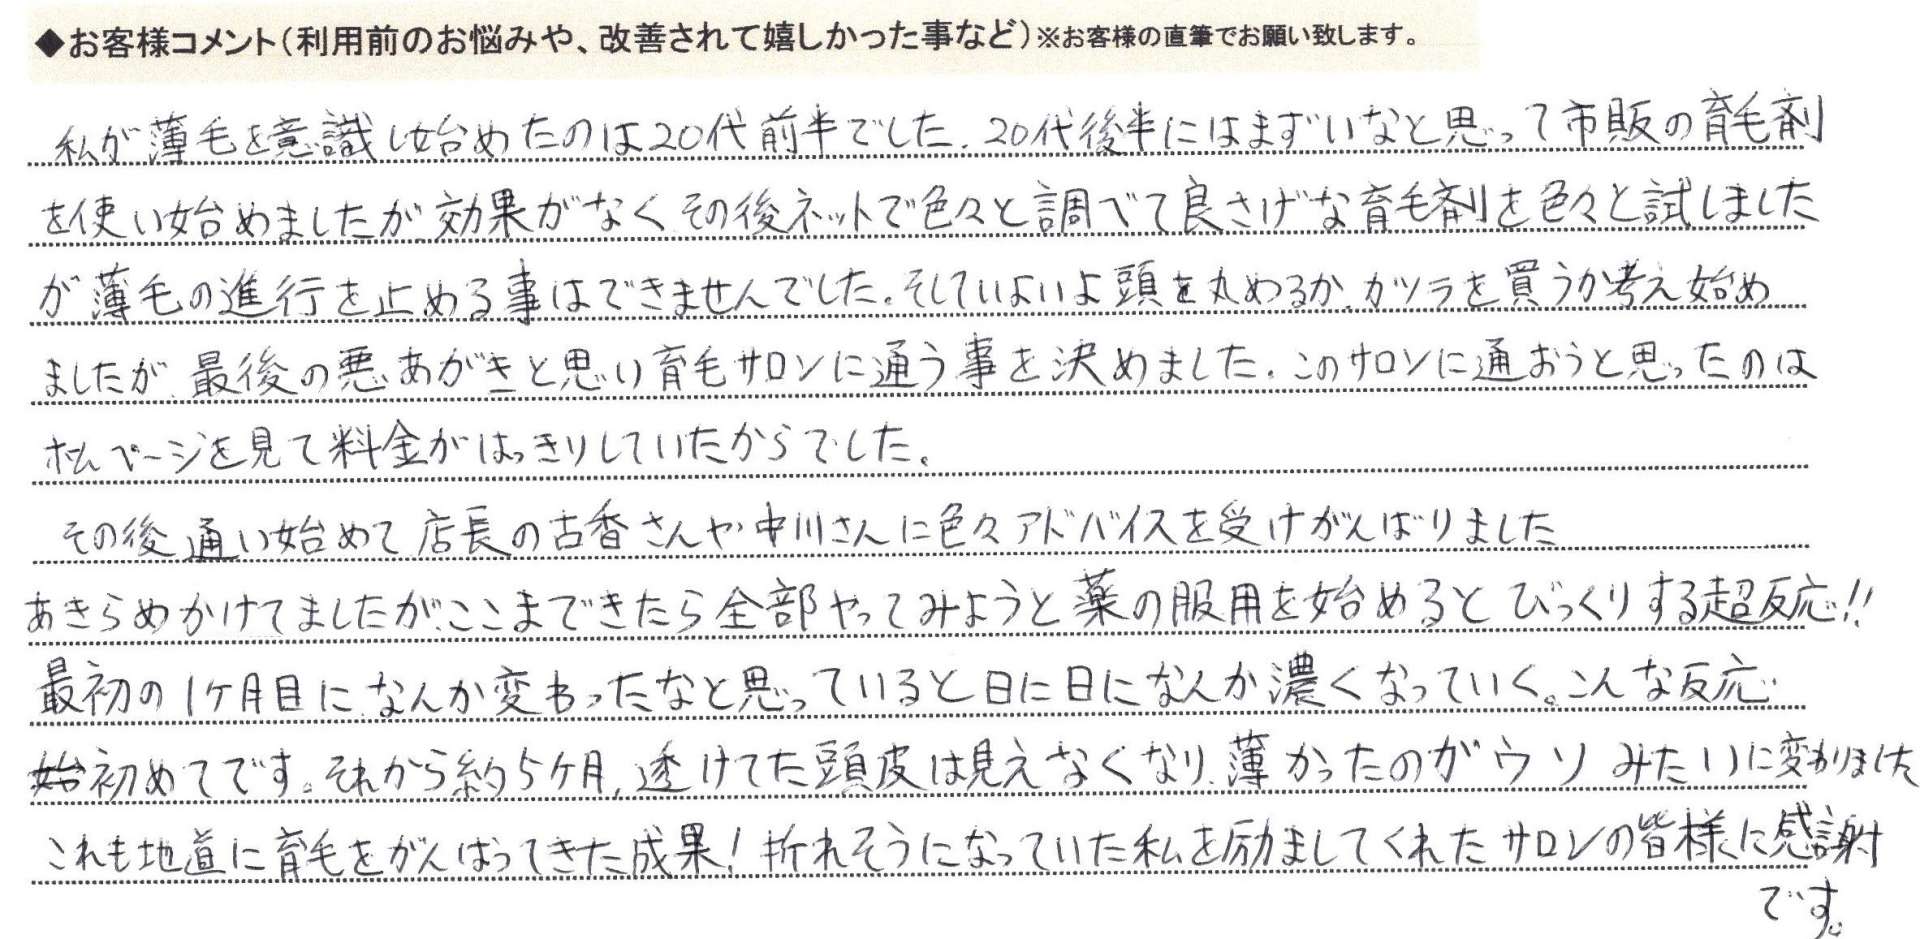 ◆お客様コメント（利用前のお悩みや、改善されて嬉しかった事など）※お客様の直筆でお願い致します。
私が薄毛を意識し始めたのは20代前半でした。20代後半にはまずいなと思って市販の育毛剤
を使い始めましたが効果がなくその後ネットで色々と調べて良さげな育毛剤を色々と試しました
が薄毛の進行を止める事はできませんでした。そしていよいよ頭を丸めるか、カツラを買うか考え始め
ましたが、最後の悪あがきと思い育毛サロンに通う事を決めました。このサロンに通おうと思ったのは
ホームページを見て料金がはっきりしていたからでした。
その後通い始めて店長の古香さんや中川さんに色々アドバイスを受けがんばりました
あきらめかけてましたが、ここまできたら全部やってみようと薬の服用を始めるとびっくりする超反応!!
最初の1ヶ月目になんか変わったなと思っていると日に日になんか濃くなっていく。こんな反応
初めてです。それから約5ヶ月、透けてた頭皮は見えなくなり、薄かったのがウソみたいに変わりました
これも地道に育毛をがんばってきた成果!折れそうになっていた私を励ましてくれたサロンの皆様に感謝
です。